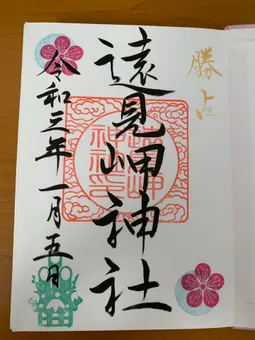 勝占
遠見岬神社
令和三年一月五日
遠見岬
神社印